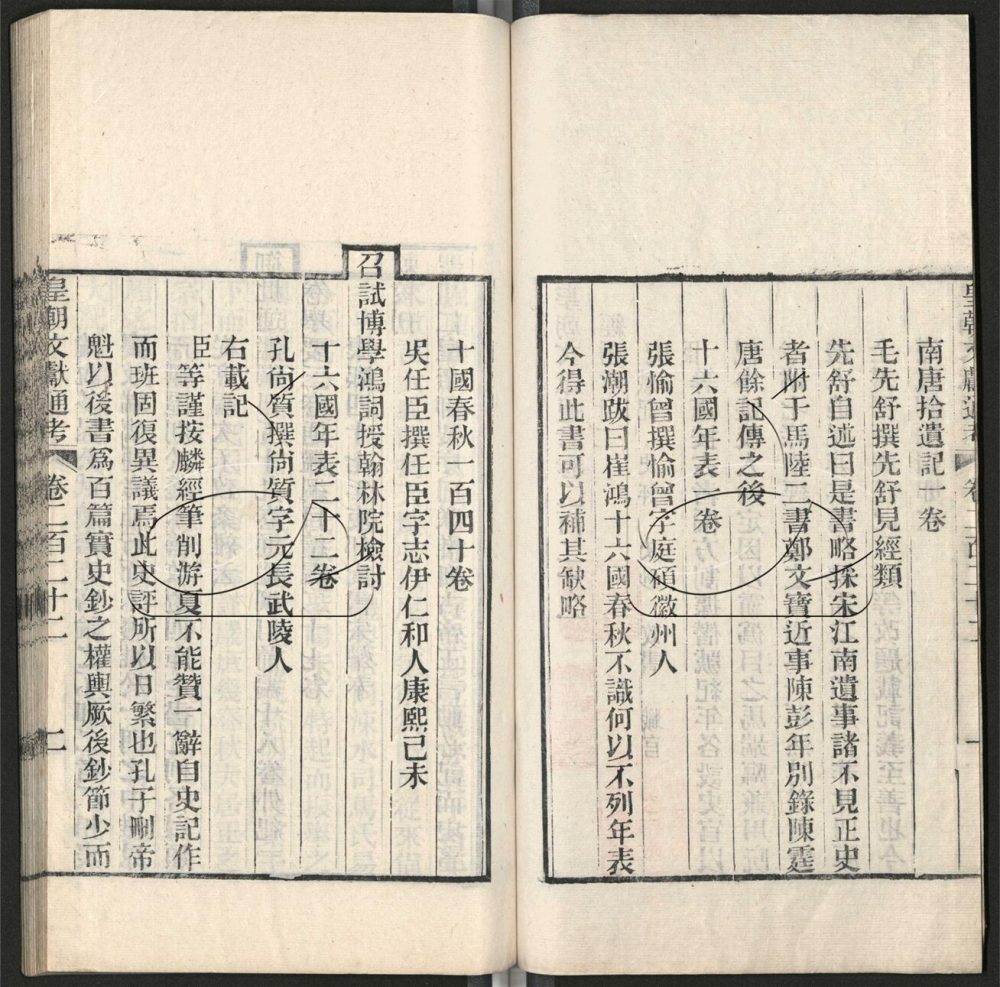 皇朝文獻通考 卷二百二十二 一
南唐拾遺記一卷
毛先舒撰先舒見經類
先舒自述曰是書略採宋江南遺事諸不見正史
者附于馬陸二書鄭文寶近事陳彭年別錄陳霆
唐餘記傳之後
十六國年表一卷
張愉曾撰愉曾字庭碩徽州人
張潮跋曰崔鴻十六國春秋不識何以不列年表
今得此書可以補其缺略
十國春秋一百四十卷
吳任臣撰任臣字志伊仁和人康熙己未
召試博學鴻詞授翰林院檢討
十六國年表二十二卷
孔尙質撰尙質字元長武陵人
右載記
臣等謹按麟經筆削游夏不能贊一辭自史記作
而班固復異議焉此史評所以日繁也孔子刪帝
魁以後書爲百篇實史鈔之權輿厥後鈔節少而
皇朝文獻通考 卷二百二十二 二